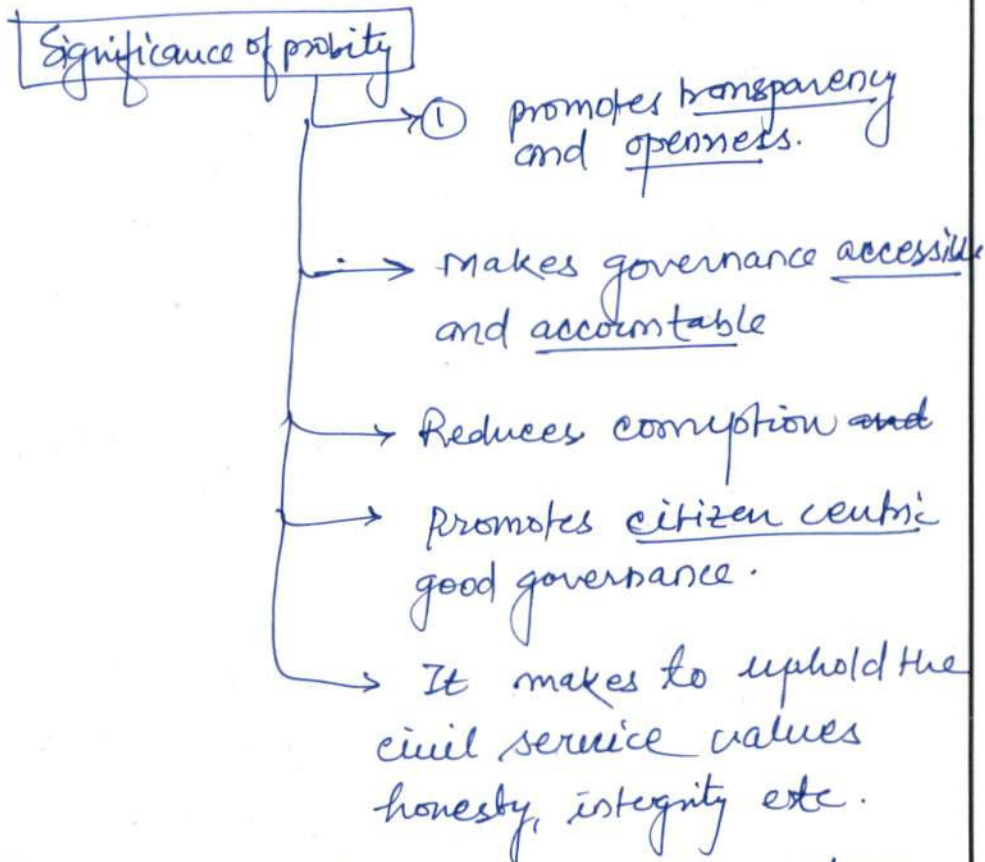 Significance of probity
① promotes transparency
and openness.
Makes governance accessible
and accountable
Reduces corruption and
promotes citizen centric
good governance.
It makes to uphold the
civil service values
honesty, integrity etc.